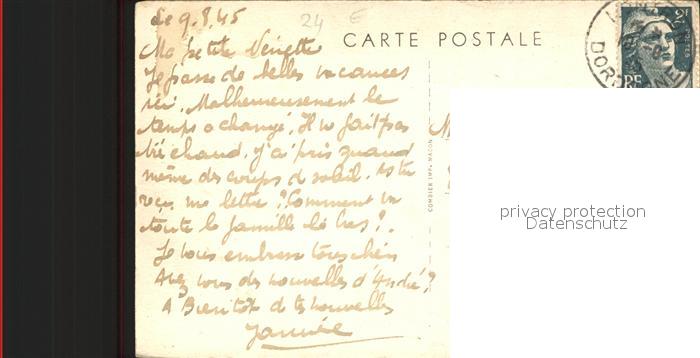 Le 9.8.45
24 €
CARTE POSTALE
Ma petite Ninette
Je passe de belles vacances
ici. Malheureusement le
temps a changé. Il ne fait pas
très chaud. J'ai pris quand
même des coups de soleil. As tu
reçu ma lettre ? Comment va
toute la famille là bas ?.
Je vous embrasse tous chéris
Avez vous des nouvelles d'André ?
A Bientôt de tes nouvelles
COMBIER IMP. MACON
DOR
RF
privacy protection
Datenschutz